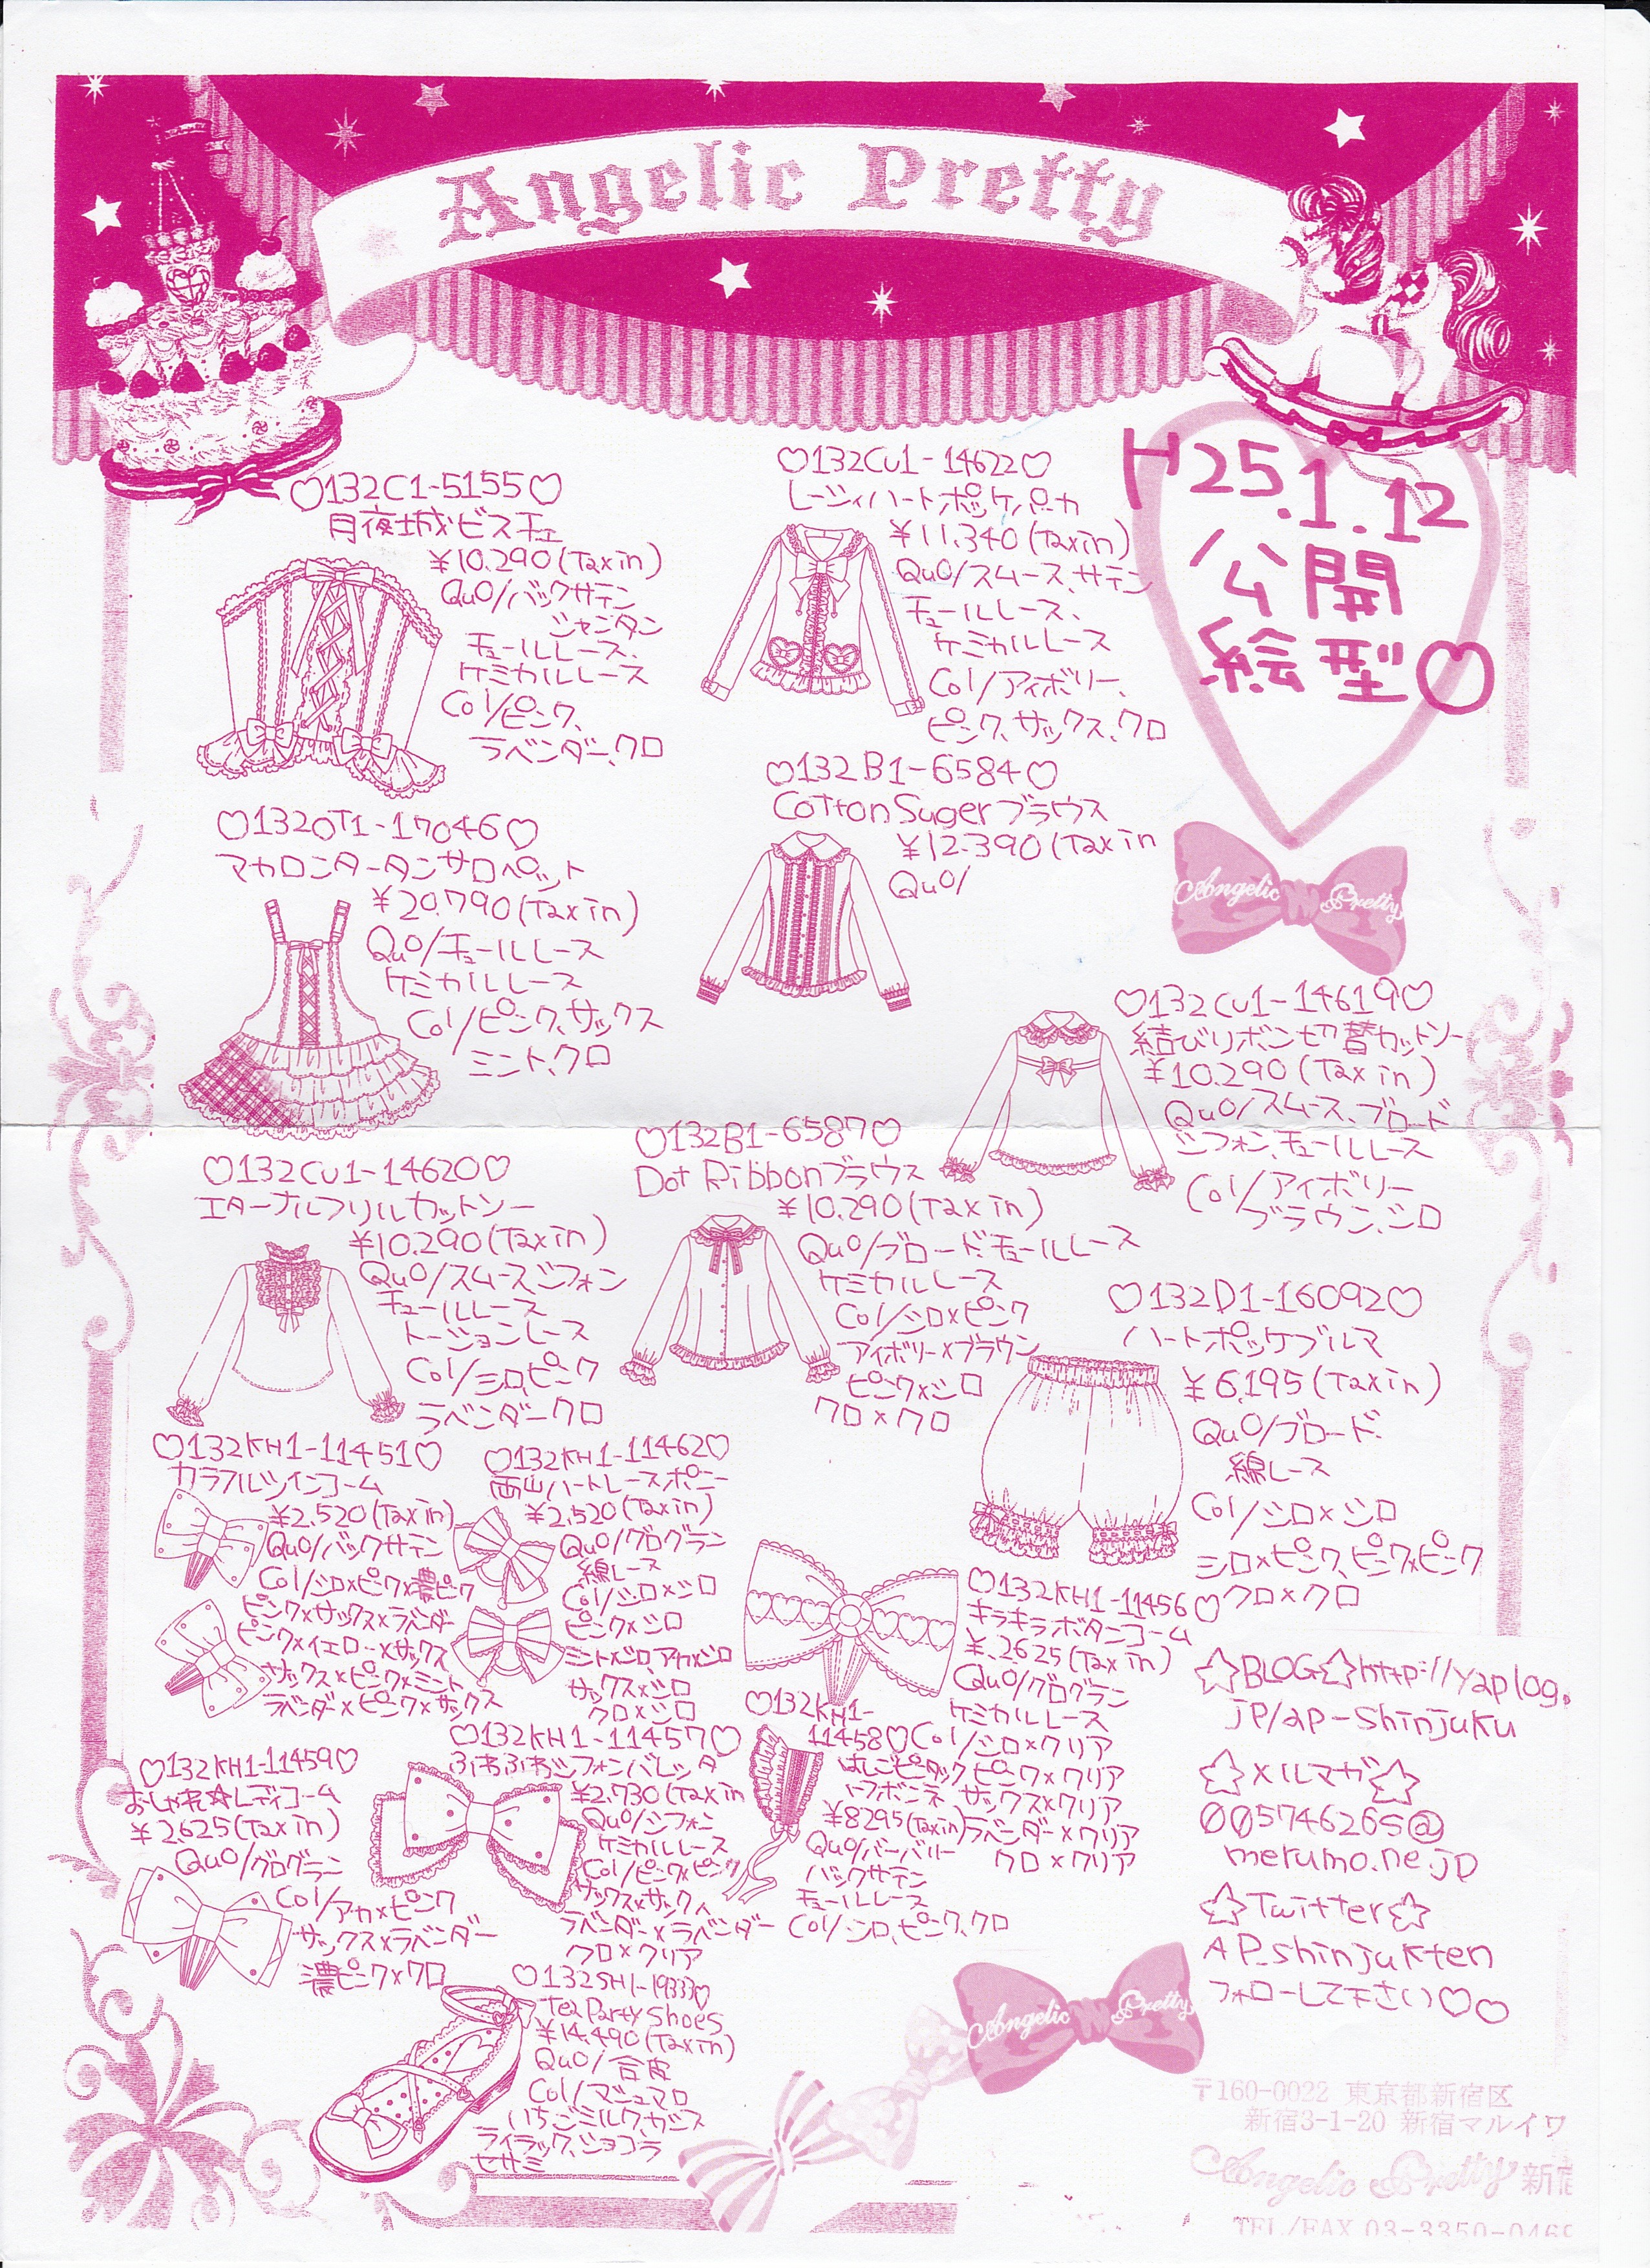 Angelic Pretty
H25.1.12
公開
絵型♡
♡132C1-5155♡
月夜城ビスチェ
¥10.290(Taxin)
Quo/バックサテン
シャンタン
チュールレース、
ケミカルレース
Col/ピンク、
ラベンダー、クロ
♡132Cu1-14622♡
レーシィハートポッケパーカ
¥11.340(Taxin)
Quo/スムース、サテン
チュールレース、
ケミカルレース
Col/アイボリー、
ピンク、サックス、クロ
♡132OT1-17046♡
マカロンタータンサロペット
¥20.790(Taxin)
Quo/チュールレース
ケミカルレース
Col/ピンク、サックス
ミント、クロ
♡132B1-6584♡
Cotton Sugerブラウス
¥12.390(Taxin
Quo/
Angelic Pretty
♡132Cu1-14619♡
結びリボン切替カットソー
¥10.290(Taxin)
Quo/スムース、ブロード
シフォン、チュールレース
Col/アイボリー
ブラウン、シロ
♡132Cu1-14620♡
エターナルフリルカットソー
¥10.290(Taxin)
Quo/スムースシフォン
チュールレース
トーションレース
Col/シロ、ピンク
ラベンダークロ
♡132B1-6587♡
Dot Ribbonブラウス
¥10.290(Taxin)
Quo/ブロードチュールレース
ケミカルレース
Col/シロ×ピンク
アイボリー×ブラウン
ピンク×シロ
クロ×クロ
♡132D1-16092♡
ハートポッケブルマ
¥6.195(Taxin)
Quo/ブロード
綿レース
Col/シロ×シロ
シロ×ピンク、ピンク×ピンク
クロ×クロ
♡132KH1-11451♡
カラフルツインコーム
¥2.520(Taxin)
Quo/バックサテン
Col/シロ×ピンク×濃ピンク
ピンク×サックス×ラベンダー
ピンク×イエロー×サックス
サックス×ピンク×ミント
ラベンダー×ピンク×サックス
♡132KH1-11462♡
両山ハートレースポニー
¥2.520(Taxin)
Quo/グログラン
綿レース
Col/シロ×シロ
ピンク×シロ
ミント×シロ、アカ×シロ
サックス×シロ
クロ×シロ
♡132KH1-11456♡
キラキラボタンコーム
¥.2625(Taxin)
Quo/グログラン
ケミカルレース
Col/シロ×クリア
ピンク×クリア
サックス×クリア
ラベンダー×クリア
クロ×クリア
♡132KH1-11459♡
おしゃれ☆レディコーム
¥2.625(Taxin)
Quo/グログラン
Col/アカ×ピンク
サックス×ラベンダー
濃ピンク×クロ
♡132KH1-11457♡
ふわふわシフォンバレッタ
¥2.730(Taxin
Quo/シフォン
ケミカルレース
Col/ピンク×ピンク
サックス×サックス
ラベンダー×ラベンダー
クロ×クリア
♡132KH1-
11458♡
はしごピンタック
トフボンネ
¥8295(Taxin)
Quo/バーバリー
バックサテン
チュールレース
Col/シロ、ピンク、クロ
♡132SH1-19333♡
Tea Party Shoes
¥14.490(Taxin)
Quo/合皮
Col/マシュマロ
いちごミルク、カシス
ライラック、ショコラ
セサミ
☆BLOG☆http://yaplog.
jp/ap-shinjuku
☆メルマガ☆
005746265@
merumo.ne.jp
☆Twitter☆
AP_shinjukten
フォローして下さい♡♡
Angelic Pretty
〒160-0022 東京都新宿区
新宿3-1-20 新宿マルイワ
Angelic Pretty 新宿
TEL/FAX 03-3350-0469